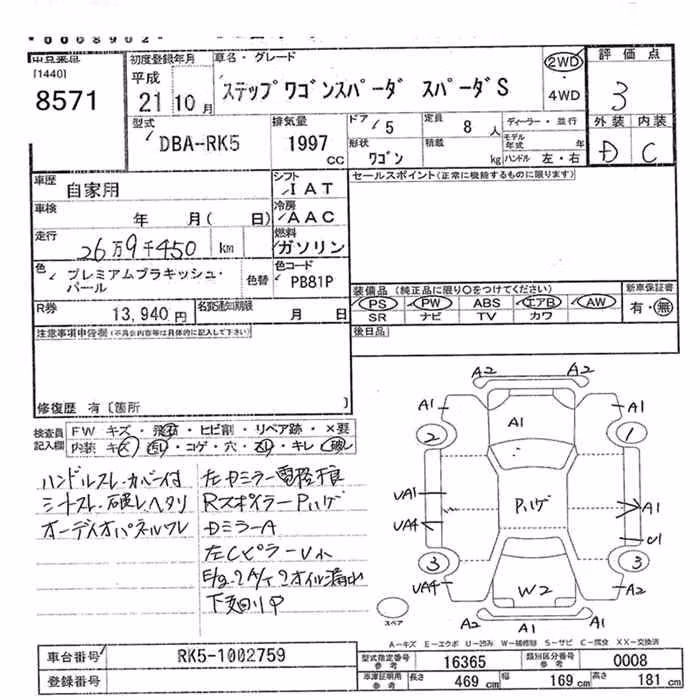 *0008902*
[1440]
8571
初度登録年月
平成
21 10月
車名・グレード
ステップワゴンスパーダ スパーダS
2WD
・
4WD
評価点
3
外装 内装
D C
型式
DBA-RK5
排気量
1997
CC
ドア 5
定員 8 人
形状
ワゴン
積載 kg
ディーラー・並行
モデル年式 年
ハンドル 左・右
車歴
自家用
シフト
IAT
車検
年 月( 日)
冷房
AAC
走行
26万9千450 km
燃料
ガソリン
色
プレミアムブラキッシュ・
パール
色替
色コード
PB81P
R券
13,940円
名変通知期限
月 日
セールスポイント(正常に機能するものに限ります)
装備品(純正品に限り○をつけてください)
PS PW ABS エアB AW
SR ナビ TV カワ
新車保証書
有・無
後日品
注意事項申告欄(不具合内容等は具体的に記入して下さい)
修復歴 有〔箇所
検査員
記入欄
FW キズ・飛石・ヒビ割・リペア跡・×要
内装 キズ・汚れ・コゲ・穴・スレ・キレ・破れ
ハンドルスレ・カバー付
シートスレ・破レヘタリ
オーディオパネルワレ
左Dミラー電格不良
RスポイラーPハゲ
DミラーA
左CピラーU小
E/g・A/Tオイル漏れ
下廻りP
A2 A2
A1 A1 A1
2 1
UA1 Pハゲ A1
UA4 U1
3 3
UA4 W2 A1
A2 A1 A2
スペア
A-キズ E-エクボ U-凹み W-補修跡 S-サビ C-腐食 XX-交換済
車台番号
RK5-1002759
登録番号
型式指定番号
参考
16365
類別区分番号
参考
0008
車庫証明用
参考
長さ 469 cm 幅 169 cm 高さ 181 cm